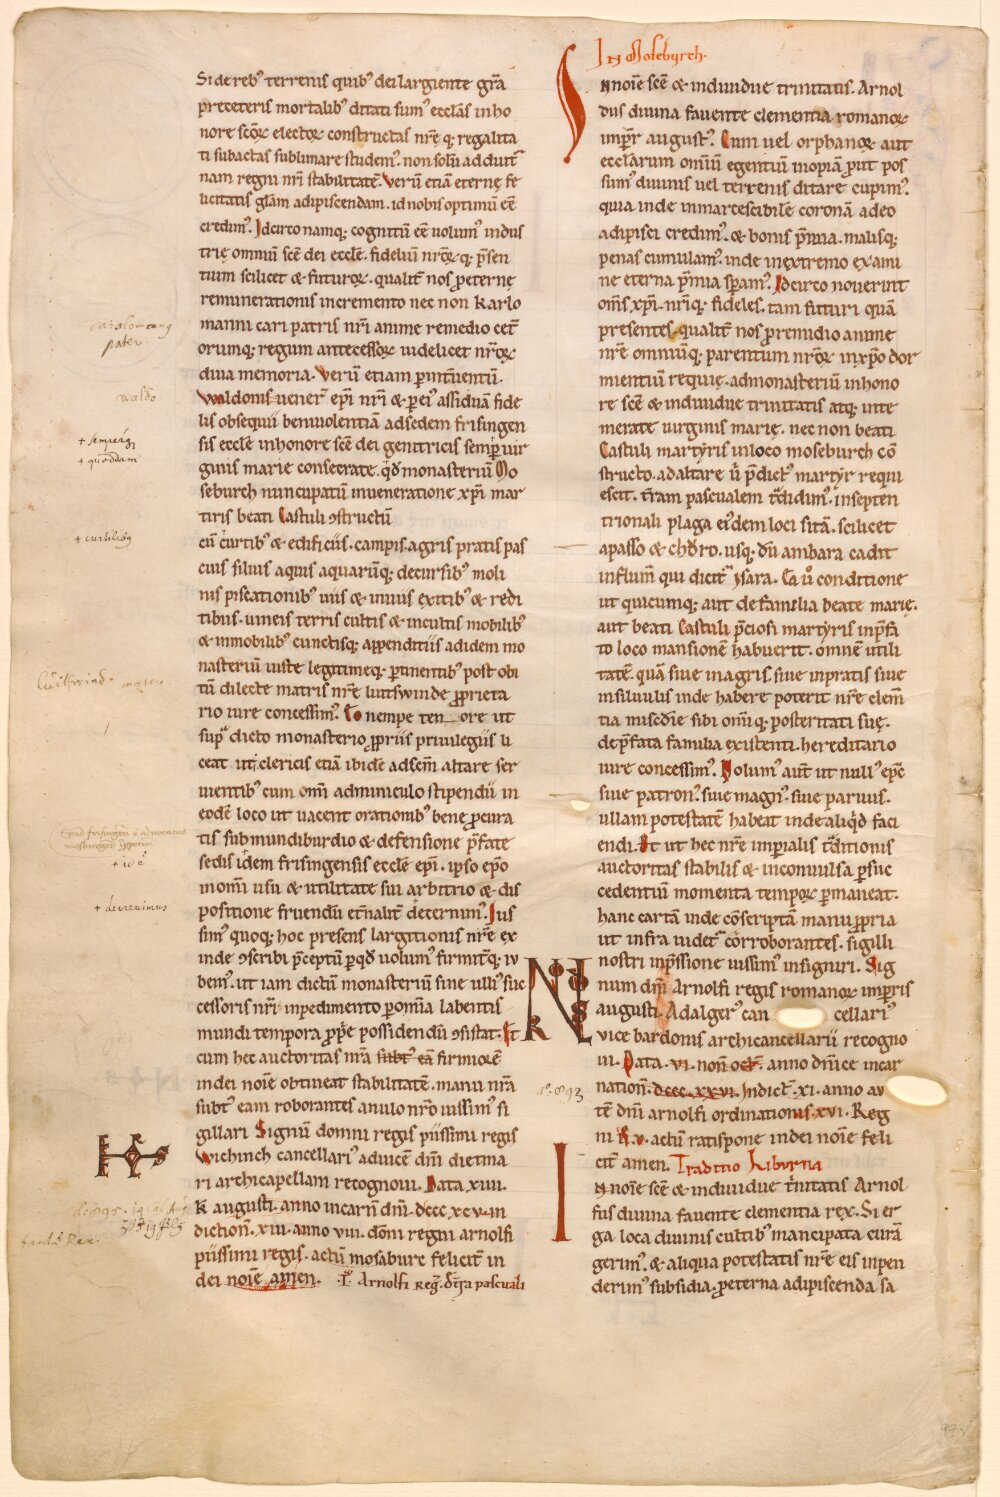 Si de reb⁹ terrenis quib⁹ dei largiente gr̃a
pre ceteris mortalib⁹ ditati sum⁹ eccl̃as in ho
nore sc̃oꝝ electoꝝ constructas nr̃ę q; regalita
ti subactas sublimare studem⁹. non solũ ad diut
nam regni nr̃i stabilitatẽ. Verũ etiã eternę fe
licitatis gl̃am adipiscendam. id nobis optimũ ẽẽ
credim⁹. Idcirco namq; cognitũ ẽẽ uolum⁹ indus
trię omniũ sc̃e dei eccl̃e. fideliũ nr̃oꝝ q; p̃sen
tium scilicet & futuroꝝ. qualit̃ nos ꝓ eternę
remunerationis incremento nec non karlo
manni cari patris nr̃i anime remedio cet̃
orumq; regum antecessoꝝ uidelicet nr̃oꝝ
diua memoria. Verũ etiam ꝑ int̃uentũ.
Waldonis uener̃ ep̃i nr̃i & ꝑ ei⁹ assiduã fide
lis obsequii beniuolentiã ad sedem frisingen
sis eccl̃e in honore sc̃e dei genitricis semꝑ uir
ginis marie consecrate. qd̃ monasteriũ Mo
seburch nuncupatũ in ueneratione xp̃i mar
tiris beati Castuli ɔstructũ
cũ c̃urtib⁹ & edificiis. campis. agris pratis pas
cuis siluis aquis aquarũq; decursib⁹ moli
nis piscationib⁹ uiis & inuiis exitib⁹ & redi
tibus. uineis terris cultis & incultis mobilib⁹
& inmobilib⁹ cunctisq; appenditiis ad idem mo
nasteriũ iuste legitimeq; ꝑtinentib⁹ post obi
tũ dilecte matris nr̃e liutswinde ꝓprieta
rio iure concessim⁹. Eo nempe ten ore ut
sup̃ dicto monasterio ꝓpriis priuilegiis li
ceat ut clericis etiã ibidẽ ad sc̃m altare ser
uientib⁹ cum om̃i adminiculo stipendii in
eodẽ loco ut uacent orationib⁹ bene ꝓcura
tis sub mundiburdio & defensione p̃fate
sedis idem frisingensis eccl̃e ep̃i. ipso ep̃o
in om̃i usu & utilitate sui arbitrio & dis
positione fruendũ et̃nalit̃ decernim⁹. Ius
sim⁹ quoq; hoc presens largitionis nr̃e ex
inde ɔscribi p̃ceptũ ꝑ qd̃ uolum⁹ firmit̃q; iu
bem⁹. ut iam dictũ monasteriũ sine ulli⁹ suc
cessoris nr̃i inpedimento ꝑ om̃ia labentis
mundi tempora ꝓp̃e possidendũ ɔsistat. Et
cum hec auctoritas nr̃a subt̃ eã firmior ẽ
in dei noĩe obtineat stabilitatẽ. manu nr̃a
subt⁹ eam roborantes anulo nr̃o iussim⁹ si
gillari Signũ domni regis piissimi regis
Wichinch cancellari⁹ ad uicẽ dm̃i dietma
ri archicapellam recognoui. Data xuiii.
k̃ augusti. anno incarñ dm̃i. dccc.xcv. in
diction̄. xiii. anno viii. dom̃i regni arnolfi
piissimi regis. actũ mosabure felicit̃ in
dei noĩe amen. T⁹. Arnolfi Reg̃. de t̃ra pascuali
carolomany
pater
waldo
+ semper
+ quoddam
+ curtilib⁹
Liuthwind. mater
+ decernimus
In Moseburch.
In noĩe sc̃e & indiuidue trinitatis. Arnol
dus diuina fauente clementia romanoꝝ
imꝑr̃ august⁹. Cum uel orphanoꝝ aut
eccl̃arum om̃iũ egentiũ inopiã ꝓut pos
sum⁹ diuinis uel terrenis ditare cupim⁹.
quia inde inmarcescibilẽ coronã a deo
adipisci credim⁹. & bonis p̃mia. malisq;
penas cumulam⁹. inde in extremo exami
ne eterna p̃mia sꝑam⁹. Idcirco nouerint
om̃s xp̃i. nr̃iq; fideles. tam futuri quã
presentes qualit̃ nos ꝓ remidio anime
nr̃e omniũq; parentum nr̃oꝝ in xp̃o dor
mientiũ requię. ad monasteriũ in hono
re sc̃e & indiuidue trinitatis atq; inte
merate uirginis marię. nec non beati
Castuli martyris in loco moseburch cõ
structo. ad altare ũ p̃dict⁹ martyr requi
escit. t̃ram pascualem t̃didim⁹. in septen
trionali plaga ei⁹dem loci sitã. scilicet
a passo & chõro. usq; dũ ambara cadit
in flum̃ qui dicit̃ ysara. Ea ũo conditione
ut quicumq; aut de familia beate marię.
aut beati Castuli p̃ciosi martyris in p̃fa
to loco mansionẽ habuerit. omnẽ utili
tatẽ. quã siue in agris. siue in pratis siue
in siluulis inde habere poterit nr̃e elem̃
tia misc̃die sibi om̃iq; posteritati suę.
de p̃fata familia existenti. hereditario
iure concessim⁹. Nolum⁹ aut̃ ut null⁹ ep̃c
siue patron⁹. siue magn⁹. siue paruus.
ullam potestatẽ habeat inde aliqd̃ faci
endi. Et ut hec nr̃e imperialis t̃ditionis
auctoritas stabilis & inconuulsa ꝑ suc
cedentiũ momenta tempoꝝ ꝑmaneat.
hanc cartã inde cõscriptã manu ꝓpria
ut infra uidet̃ corroborantes. sigilli
nostri inp̃ssione iussim⁹ insigniri. Sig
num dm̃i Arnolfi regis romanoꝝ imꝑris
augusti. Adalger⁹ can cellari⁹
vice bardonis archicancellarii recogno
ui. Data. vi. non̄ oct̃. anno dñice incar
nation̄. dccc.xxvi. Indict̃. xi. anno au
tẽ dm̃i arnolfi ordinationis. xvi. Reg
ni R. v. actũ ratispone in dei noĩe feli
cit̃ amen. Traditio Liburna
In noĩe sc̃e & indiuidue t̃nitatis Arnol
fus diuina fauente clementia rex. Si er
ga loca diuinis cultib⁹ mancipata curã
gerim⁹. & aliqua potestatis nr̃e eis inpen
derim⁹ subsidia. ꝓ eterna adipiscenda sa
97v